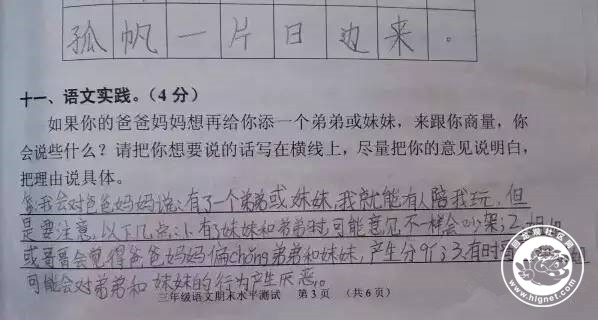 孤帆一片日边来。
十一、语文实践。(4分)
如果你的爸爸妈妈想再给你添一个弟弟或妹妹，来跟你商量，你
会说些什么？请把你想要说的话写在横线上，尽量把你的意见说明白，
把理由说具体。
我会对爸爸妈妈说：有了一个弟弟或妹妹，我就能有人陪我玩，但
是要注意，以下几点：1.有了妹妹和弟弟时可能意见不一样会吵架；2.姐姐
或哥哥会觉得爸爸妈妈偏chǒng弟弟和妹妹，产生分歧；3.有时
可能会对弟弟和妹妹的行为产生厌恶。
三年级语文期末水平测试 第3页 （共6页）
www.hignet.com